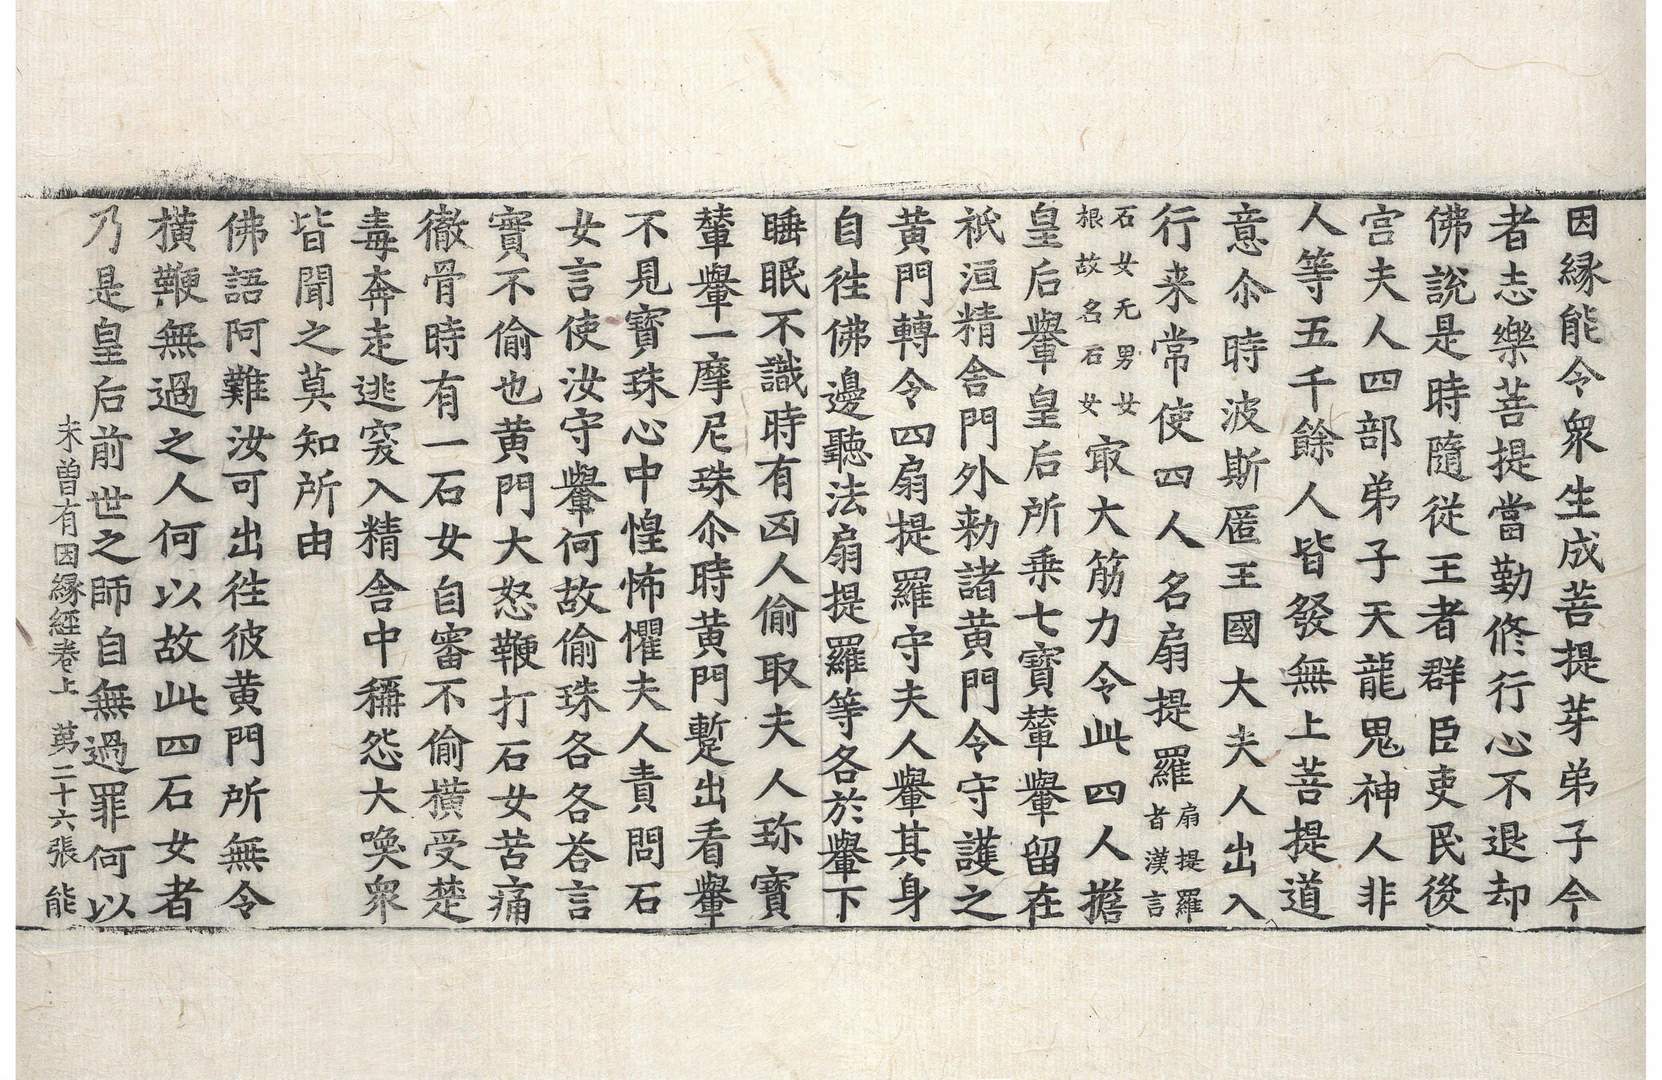 因縁能令衆生成菩提芽弟子令
者志樂菩提當勤修行心不退却
佛說是時隨從王者群臣吏民後
宮夫人四部弟子天龍鬼神人非
人等五千餘人皆發無上菩提道
意尒時波斯匿王國大夫人出入
行来常使四人名扇提羅扇提羅者漢言
石女无男女根故名石女㝡大筋力令此四人擔
皇后轝皇后所乗七寳輦轝留在
祇洹精舍門外勑諸黄門令守護之
黄門轉令四扇提羅守夫人轝其身
自徃佛邊聽法扇提羅等各於轝下
睡眠不識時有凶人偷取夫人珎寳
輦轝一摩尼珠尒時黄門蹔出看轝
不見寳珠心中惶怖懼夫人責問石
女言使汝守轝何故偷珠各各荅言
實不偷也黄門大怒鞭打石女苦痛
徹骨時有一石女自審不偷横受楚
毒奔走逃突入精舍中稱怨大喚衆
皆聞之莫知所由
佛語阿難汝可出徃彼黄門所無令
横鞭無過之人何以故此四石女者
乃是皇后前世之師自無過罪何以
未曽有因縁經卷上 第二十六張 能